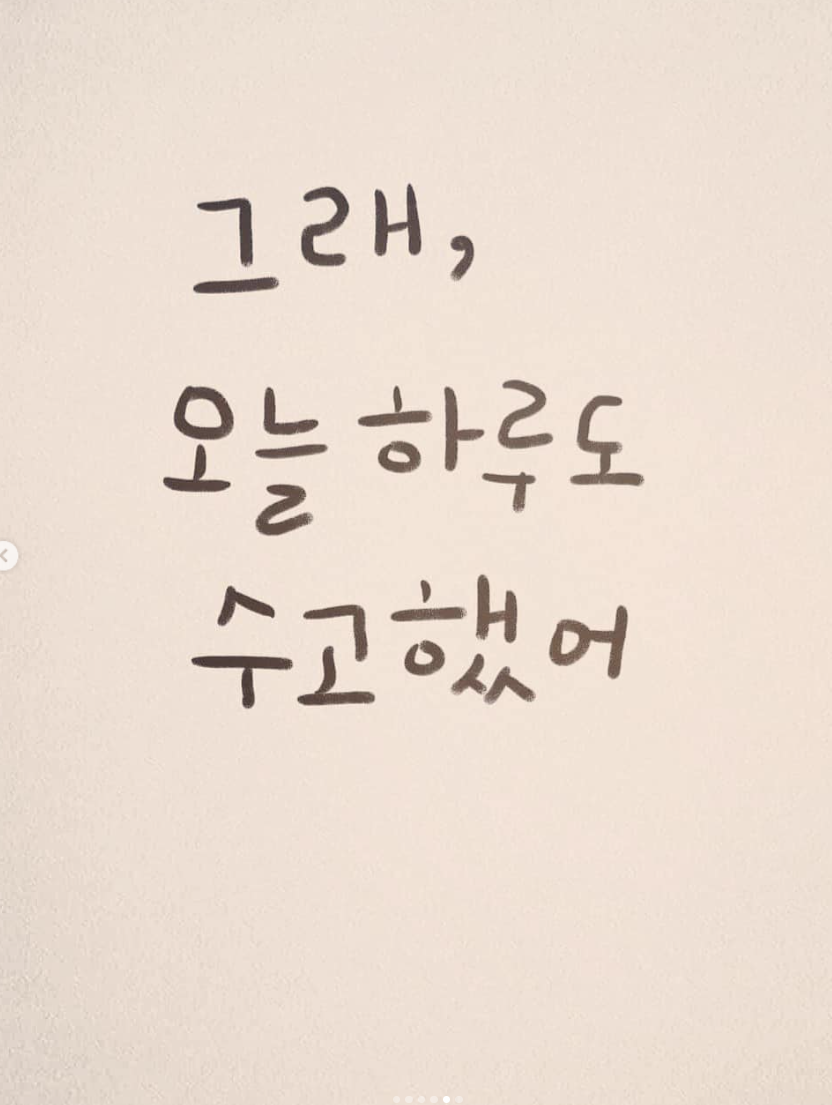 그래,
오늘 하루도
수고했어